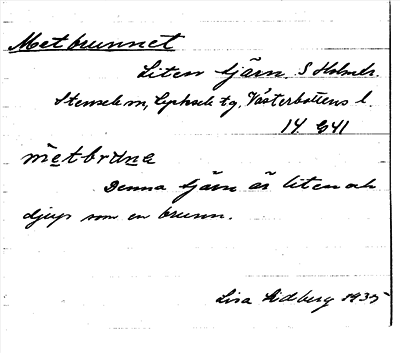 Metbrunnet
Liten tjärn, S Holmtr.
Stensele sn, Lycksele tg, Västerbottens l.
14 G41
metbrʉnə
Denna tjärn är liten och
djup som en brunn.
Lisa Lidberg 1935